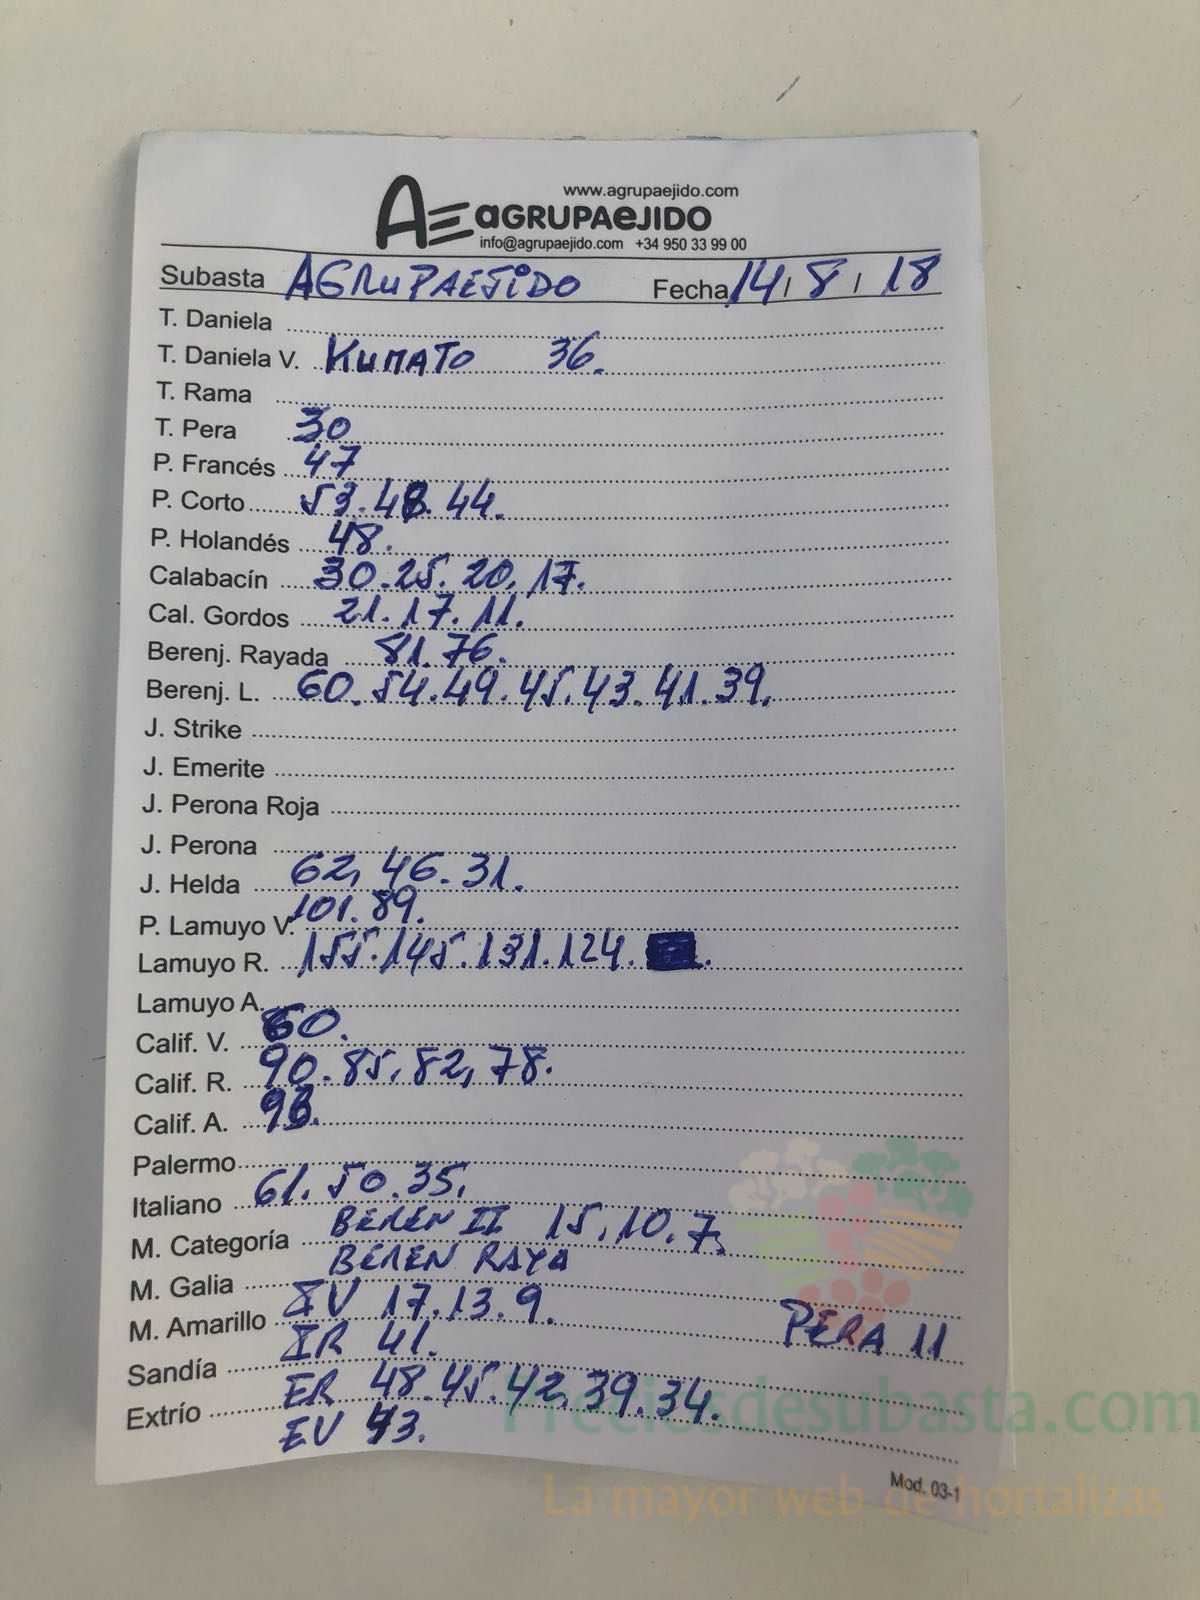 www.agrupaejido.com
AE aGRUPAeJIDO
info@agrupaejido.com +34 950 33 99 00
Subasta AGRUPAEJIDO Fecha 14/8/18
T. Daniela
T. Daniela V. KUMATO 36.
T. Rama
T. Pera 30
P. Francés 47
P. Corto 53.48.44.
P. Holandés 48.
Calabacín 30.25.20.17.
Cal. Gordos 21.17.11.
Berenj. Rayada 81.76.
Berenj. L. 60.54.49.45.43.41.39.
J. Strike
J. Emerite
J. Perona Roja
J. Perona
J. Helda 62, 46.31.
P. Lamuyo V. 101.89.
Lamuyo R. 155.145.131.124.
Lamuyo A.
Calif. V. 60.
Calif. R. 90.85.82,78.
Calif. A.
Palermo
Italiano 61.50.35.
M. Categoría BEREN II 15.10.7.
BEREN RAYA
M. Galia
M. Amarillo IV 17.13.9.
PERA 11
Sandía IR 41.
Extrío ER 48.45.42,39.34.
EV 43.
Mod. 03-1
Preciosdesubasta.com
La mayor web de hortalizas